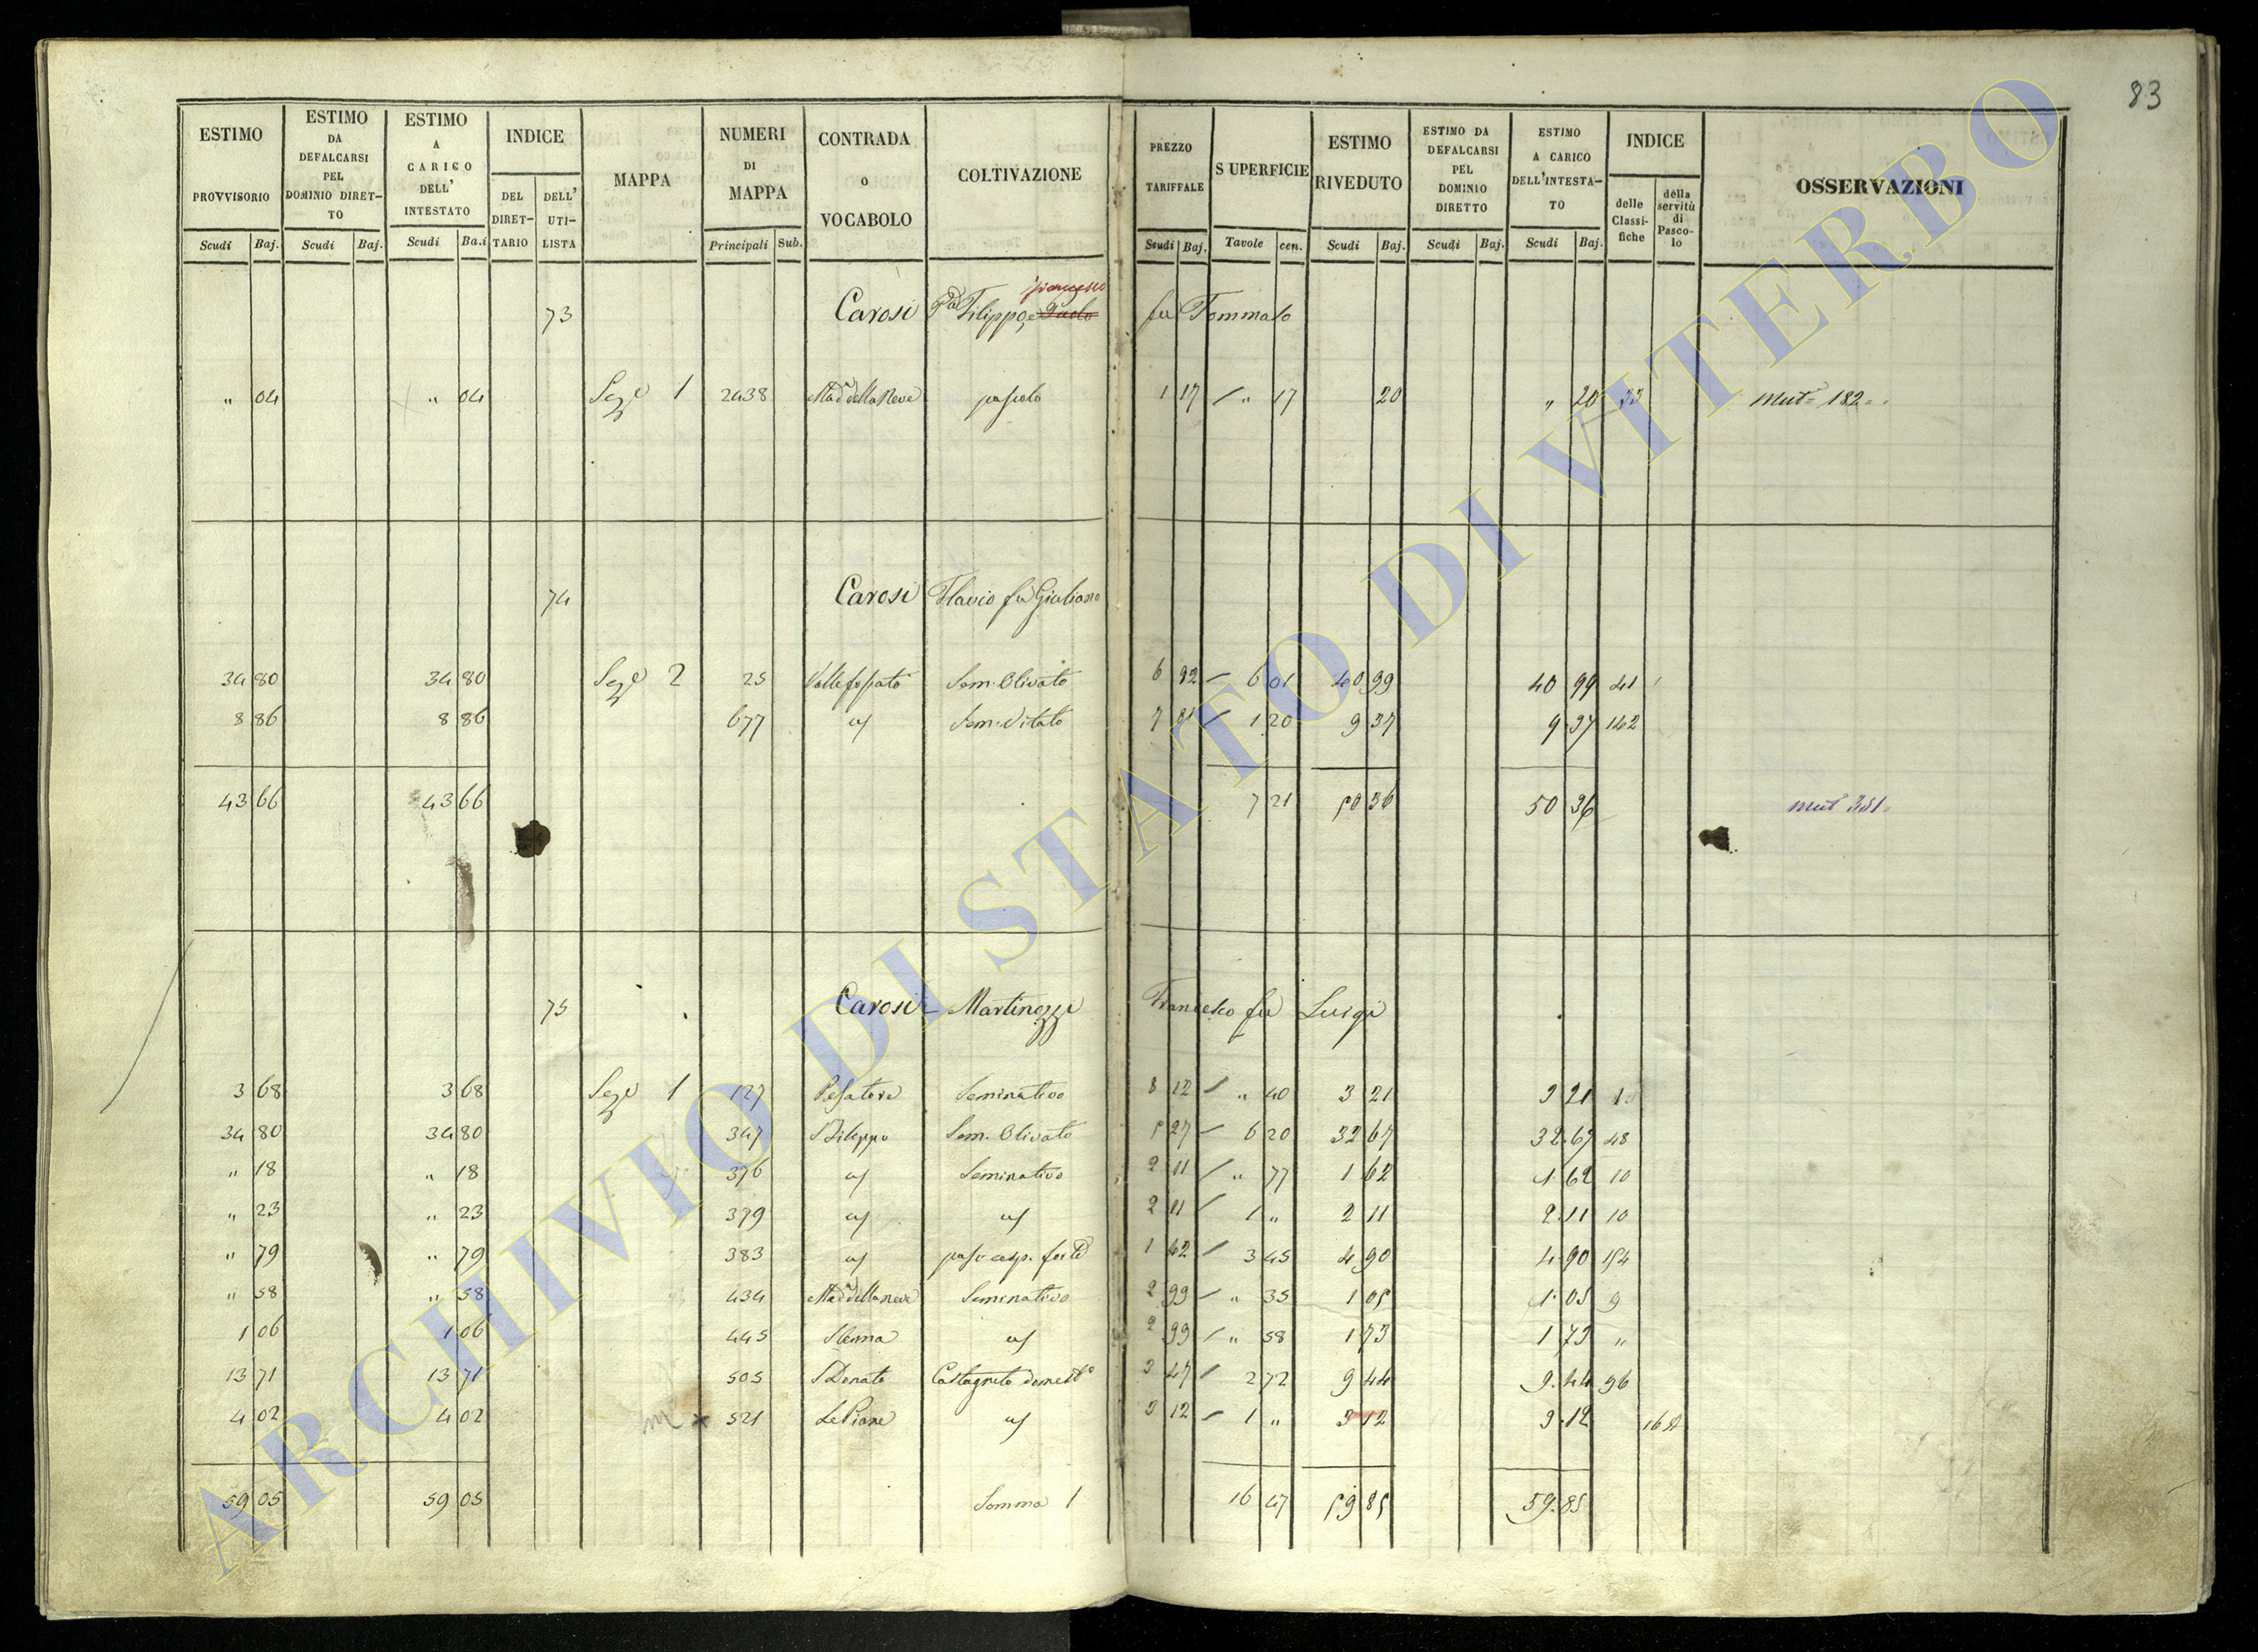 83
ESTIMO PROVVISORIO Scudi Baj. ESTIMO DA DEFALCARSI PEL DOMINIO DIRET-TO Scudi Baj. ESTIMO A CARICO DELL' INTESTATO Scudi Ba.i INDICE DEL DIRET-TARIO DELL' UTI-LISTA MAPPA NUMERI DI MAPPA Principali Sub. CONTRADA O VOCABOLO COLTIVAZIONE PREZZO TARIFFALE Scudi Baj. SUPERFICIE Tavole cen. ESTIMO RIVEDUTO Scudi Baj. ESTIMO DA DEFALCARSI PEL DOMINIO DIRETTO Scudi Baj. ESTIMO A CARICO DELL'INTESTA-TO Scudi Baj. INDICE delle Classi-fiche della servitù di Pasco-lo OSSERVAZIONI
francesco
73 Carosi Filippo, e Paolo fu Tommaso
" 04 " 04 Seze 1 2438 Mada della Neve pascolo 1 17 " 17 20 " 20 33 Mut= 182=
74 Carosi Flavio fu Giuliano
34 80 34 80 Seze 2 25 Vallefossato Sem. Olivato 6 82 6 01 40 99 40 99 41
8 86 8 86 677 as Sem. Vitato 7 81 1 20 9 37 9 37 142
43 66 43 66 7 21 50 36 50 36 mut 351=
75 Carosi Martinozzi Francesco fu Luigi
3 68 3 68 Seze 1 127 Pesatore Seminativo 8 12 " 40 3 21 3 21 1
34 80 34 80 347 S Filippo Sem. Olivato 5 27 6 20 32 67 32 67 48
" 18 " 18 376 as Seminativo 2 11 " 77 1 62 1 62 10
" 23 " 23 379 as as 2 11 1 " 2 11 2 11 10
" 79 " 79 383 as pasc cesp. forte 1 42 3 45 4 90 4 90 154
" 58 " 58 434 Mada della neve Seminativo 2 99 " 35 1 05 1 05 9
1 06 1 06 445 as 2 99 " 58 1 73 1 73 "
13 71 13 71 505 S Donato Castagneto domesto 3 47 2 72 9 44 9 44 96
4 02 4 02 m x 521 Le Piane as 3 12 1 " 3 12 3 12 162
59 05 59 05 Somma 1 16 47 59 85 59 85
ARCHIVIO DI STATO DI VITERBO